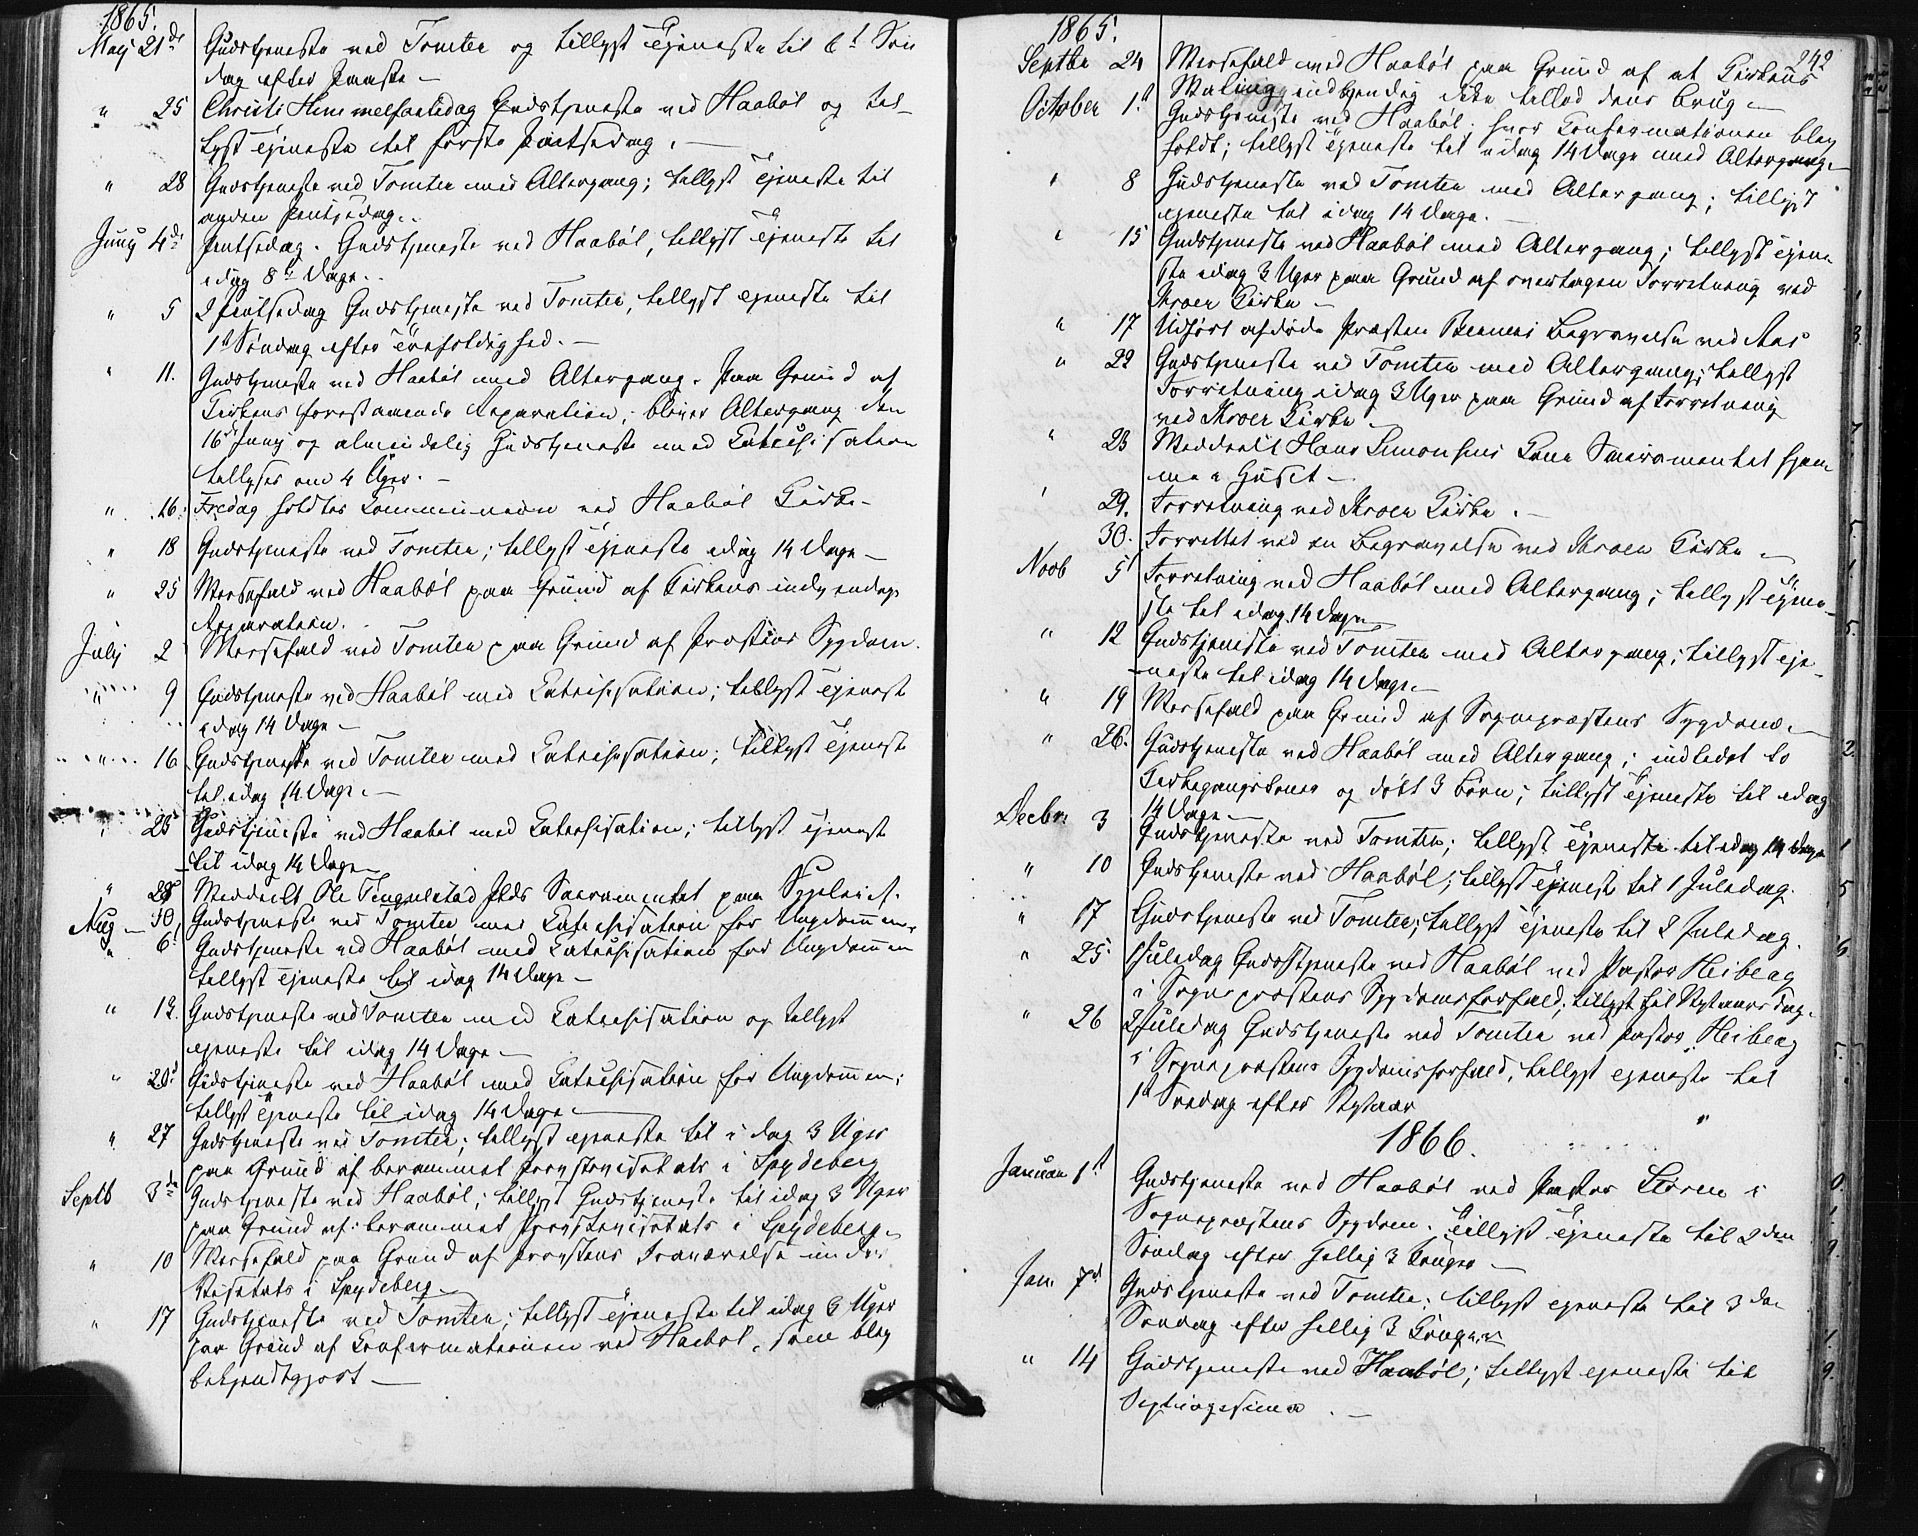 1865.
May 21de Gudstjeneste ved Tomter og tillyst Tjeneste til 6t Søn
dag efter Paaske —
" 25 Christi Himmelfartsdag Gudstjeneste ved Haabøl og til-
lyst Tjeneste til første Pintsedag. —
" 28 Gudstjeneste ved Tomter med Altergang; tillyst Tjeneste til
anden Pintsedag.
Juny 4de Pintsedag. Gudstjeneste ved Haabøl, tillyst Tjeneste til
idag 8te Dage.
" 5 2 Pintsedag Gudstjeneste ved Tomter, tillyst Tjeneste til
1st Søndag efter Trefoldighed. —
" 11. Gudstjeneste ved Haabøl med Altergang. Paa Grund af
Kirkens forestaaende Reparation, bliver Altergang den
16d Juny og almindelig Gudstjeneste med Catechisation
tillyses om 4 Uger. —
" 16. Fredag holdtes Communion ved Haabøl Kirke —
" 18 Gudstjeneste ved Tomter; tillyst Tjeneste idag 14 Dage —
" 25 Messefald ved Haabøl paa Grund af Kirkens indvendige
Reparation.
July 2 Messefald ved Tomter paa Grund af Præstens Sygdom.
" 9 Gudstjeneste ved Haabøl med Catechisation; tillyst Tjeneste
idag 14 Dage —
" 16 Gudstjeneste ved Tomter med Catechisation; tillyst Tjeneste
til idag 14 Dage. —
" 23 Gudstjeneste ved Haabøl med Catechisation; tillyst Tjeneste
til idag 14 Dage —
" 28 Meddeelt Ole Sacramentet paa Sygeleiet.
" 30 Gudstjeneste ved Tomter med Catechisation for Ungdommen.
Aug — 6t Gudstjeneste ved Haabøl med Catechisation for Ungdommen
tillyst Tjeneste til idag 14 Dage —
" 13. Gudstjeneste ved Tomter med Catechisation og tillyst
Tjeneste til idag 14 Dage —
" 20d Gudstjeneste ved Haabøl med Catechisation for Ungdommen;
tillyst Tjeneste til idag 14 Dage —
" 27 Gudstjeneste ved Tomter; tillyst Tjeneste til i dag 3 Uger
paa Grund af berammet Provstevisitats i Spydeberg
Septb 3de Gudstjeneste ved Haabøl; tillyst Gudstjeneste til idag 3 Uger
paa Grund af berammet Provstevisitats i Spydeberg.
" 10 Messefald paa Grund af Provstens Fraværelse under
Visitats i Spydeberg —
" 17 Gudstjeneste ved Tomter; tillyst Tjeneste til idag 3 Uger
paa Grund af Confirmationen ved Haabøl, som blev
bekjendtgjort —
1865.
242
Septbr 24 Messefald ved Haabøl paa Grund af at Kirkens
Maling indvendig ikke tillod dens Brug —
October 1st Gudstjeneste ved Haabøl, hvor Confirmationen blev
holdt; tillyst Tjeneste til idag 14 Dage med Altergang —
" 8 Gudstjeneste ved Tomter med Altergang; tillyst
Tjeneste til idag 14 Dage. —
" 15 Gudstjeneste ved Haabøl med Altergang; tillyst Tjene-
ste idag 3 Uger paa Grund af overtagen Forretning ved
Kroer Kirke —
" 17 Udført afdøde Præsten Begravelse ved Aas
" 22 Gudstjeneste ved Tomter med Altergang; tillyst
Forretning idag 3 Uger paa Grund af Forretning
ved Kroer Kirke —
" 23 Meddeelt Hans Simonsens Kone Sacramentet hjem-
me i Huset —
" 29. Forretning ved Kroer Kirke. —
30. Forrettet ved en Begravelse ved Kroer Kirke —
Novb 5t Forretning ved Haabøl med Altergang; tillyst Tjene-
ste til idag 14 Dage
" 12 Gudstjeneste ved Tomter med Altergang; tillyst Tje-
neste til idag 14 Dage —
" 19 Messefald paa Grund af Sognepræstens Sygdom. —
" 26. Gudstjeneste ved Haabøl med Altergang; indledet to
Kirkegangskoner og døbt 3 Børn; tillyst Tjeneste til idag
14 Dage —
Decbr. 3 Gudstjeneste ved Tomter; tillyst Tjeneste til idag 14 Dage
" 10 Gudstjeneste ved Haabøl; tillyst Tjeneste til 1 Juledag.
" 17 Gudstjeneste ved Tomter; tillyst Tjeneste til 2 Juledag.
" 25. 1 Juledag Gudstjeneste ved Haabøl ved Pastor Heiberg
i Sognepræstens Sygdomsforfald; tillyst til Nytaarsdag.
" 26 2 Juledag Gudstjeneste ved Tomter ved Pastor Heiberg
i Sognepræstens Sygdomsforfald, tillyst Tjeneste til
1st Søndag efter Nytaar
1866.
Januar 1st Gudstjeneste ved Haabøl ved Pastor i
Sognepræstens Sygdom. Tillyst Tjeneste til 2den
Søndag efter Hellig 3 Konger —
Jan. 7d Gudstjeneste ved Tomter; tillyst Tjeneste til 3die
Søndag efter hellig 3 Konger
" 14 Gudstjeneste ved Haabøl; tillyst Tjeneste til
Septuagesima. —